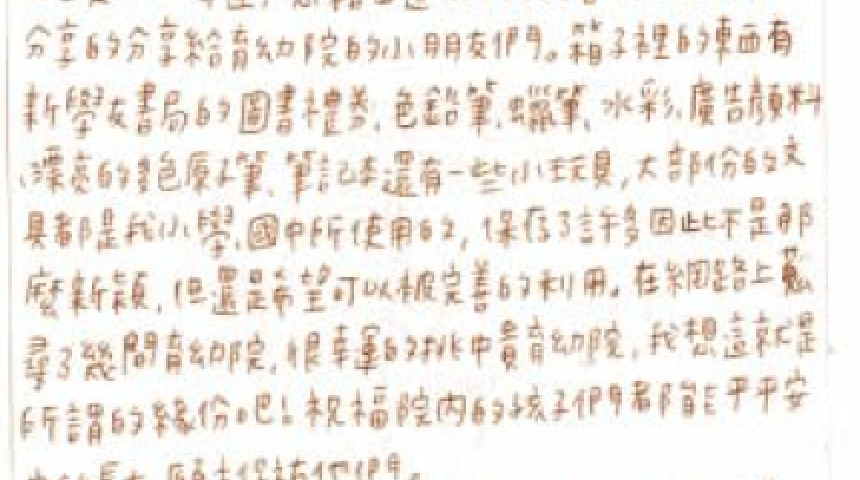 分享的分享給育幼院的小朋友們。箱子裡的東西有
新學友書局的圖書禮券、色鉛筆、蠟筆、水彩、廣告顏料
、漂亮的多色原子筆、筆記本還有一些小玩具,大部份的文
具都是我小學、國中所使用的,保存了許多因此不是那
麼新穎,但還是希望可以被完善的利用。在網路上蒐
尋了幾間育幼院,很幸運的挑中貴育幼院,我想這就是
所謂的緣份吧!祝福院內的孩子們都能平平安
長大,願主保祐他們。